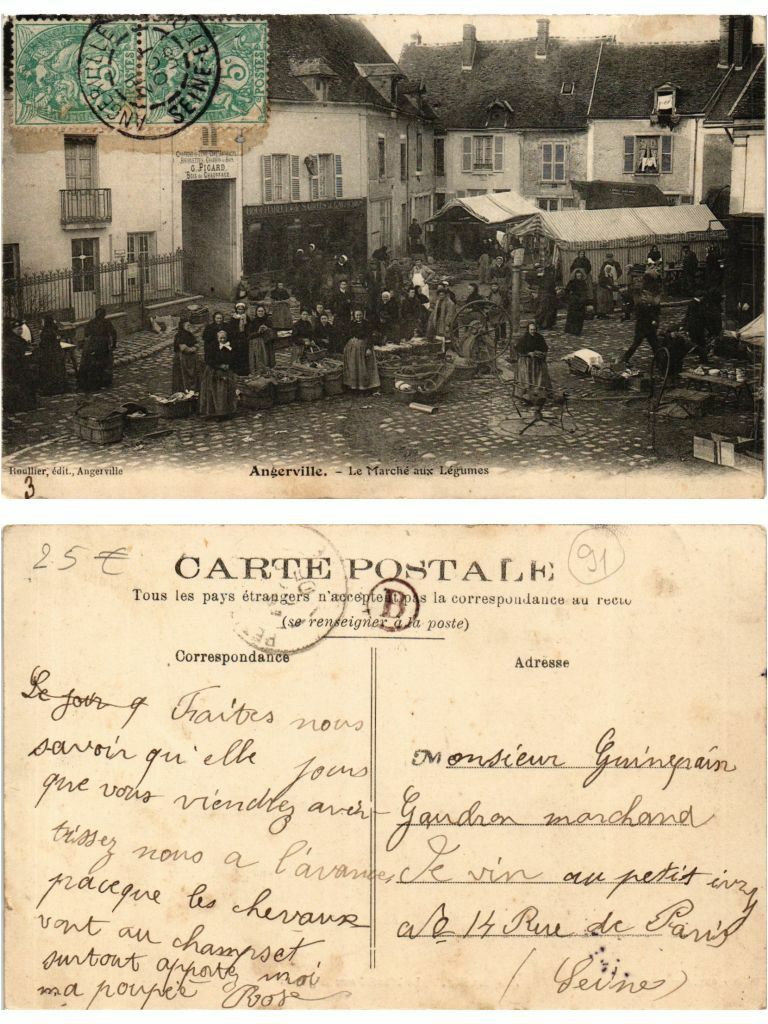 ANGERVILLE
SEINE-
5c
POSTES
G. PICARD
Roullier, édit., Angerville
Angerville. - Le Marché aux Légumes
3
25 €
91
CARTE POSTALE
Tous les pays étrangers n'acceptent pas la correspondance au recto
(se renseigner à la poste)
B
Correspondance
Adresse
Le jour q Faites nous
savoir qu'elle jours
que vous viendrez aver
tissez nous a l'avance,
paceque les chevaux
vont au champs et
surtout apportez moi
ma poupée Rose
Monsieur Guinepain
Gaudron marchand
De vin au petit ivry
a No 14 Rue de Paris
(Seine)